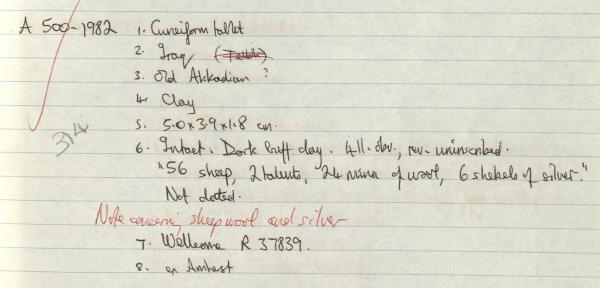 A 500-1982 1. Cuneiform tablet
2. Iraq
3. Old Akkadian ?
4. Clay
5. 5.0 x 3.9 x 1.8 cm.
6. Intact. Dark buff clay. 4 ll. obv., rev. uninscribed.
314
"56 sheep, 2 talents, 24 mina of wool, 6 shekels of silver."
Not dated.
Note concerning sheep wool and silver
7. Wellcome R 37839.
8. ex Amherst